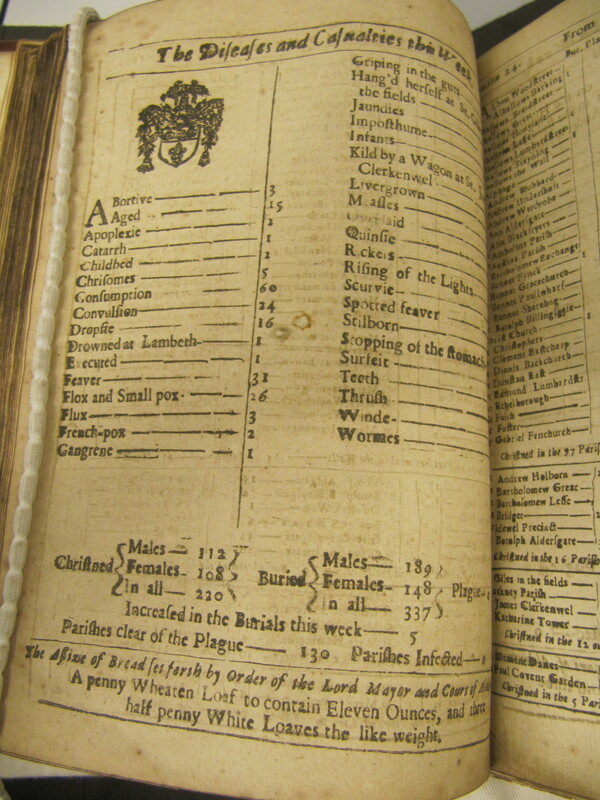 The Diseases and Casualties this Week
Abortive 3
Aged 15
Apoplexie 2
Catarrh 1
Childbed 2
Chrisomes 5
Consumption 60
Convulsion 24
Dropsie 16
Drowned at Lambeth 1
Executed 1
Feaver 31
Flox and Small pox 26
Flux 3
French-pox 2
Gangrene 1
Griping in the guts
Hang'd herself at St.
the fields
Jaundies
Imposthume
Infants
Kild by a Wagon at St.
Clerkenwel
Livergrown
Measles
Overlaid
Quinsie
Rickets
Rising of the Lights
Scurvie
Spotted feaver
Stilborn
Stopping of the stomach
Surfeit
Teeth
Thrush
Winde
Wormes
Christned Males 112
Females 108
In all 220
Buried Males 189
Females 148
In all 337
Plague
Increased in the Burials this week 5
Parishes clear of the Plague 130 Parishes Infected
The Assize of Bread set forth by Order of the Lord Mayor and Court of
A penny Wheaten Loaf to contain Eleven Ounces, and three
half penny White Loaves the like weight.
From
24.
Andrew Hubbard
Andrew Undershaft
Andrew Wardrobe
Bennet Finck
Bennet Gracechurch
Bennet Sherehog
Botolph Billingsgate
Christophers
Clement Eastcheap
Dionis Backchurch
Dunstan East
Edmund Lumbardstr
Ethelborough
Faith
Foster
Gabriel Fenchurch
Christned in the 97 Paris
Andrew Holborn
Bartholomew Great
Bartholomew Lesse
Bridget
Bridewel Precinct
Botolph Aldersgate
Christned in the 16 Parishes
Giles in the fields
Hackney Parish
James Clerkenwel
Katharine Tower
Christned in the 12 ou
Clement Danes
Paul Covent Garden
Christned in the 5 Pari